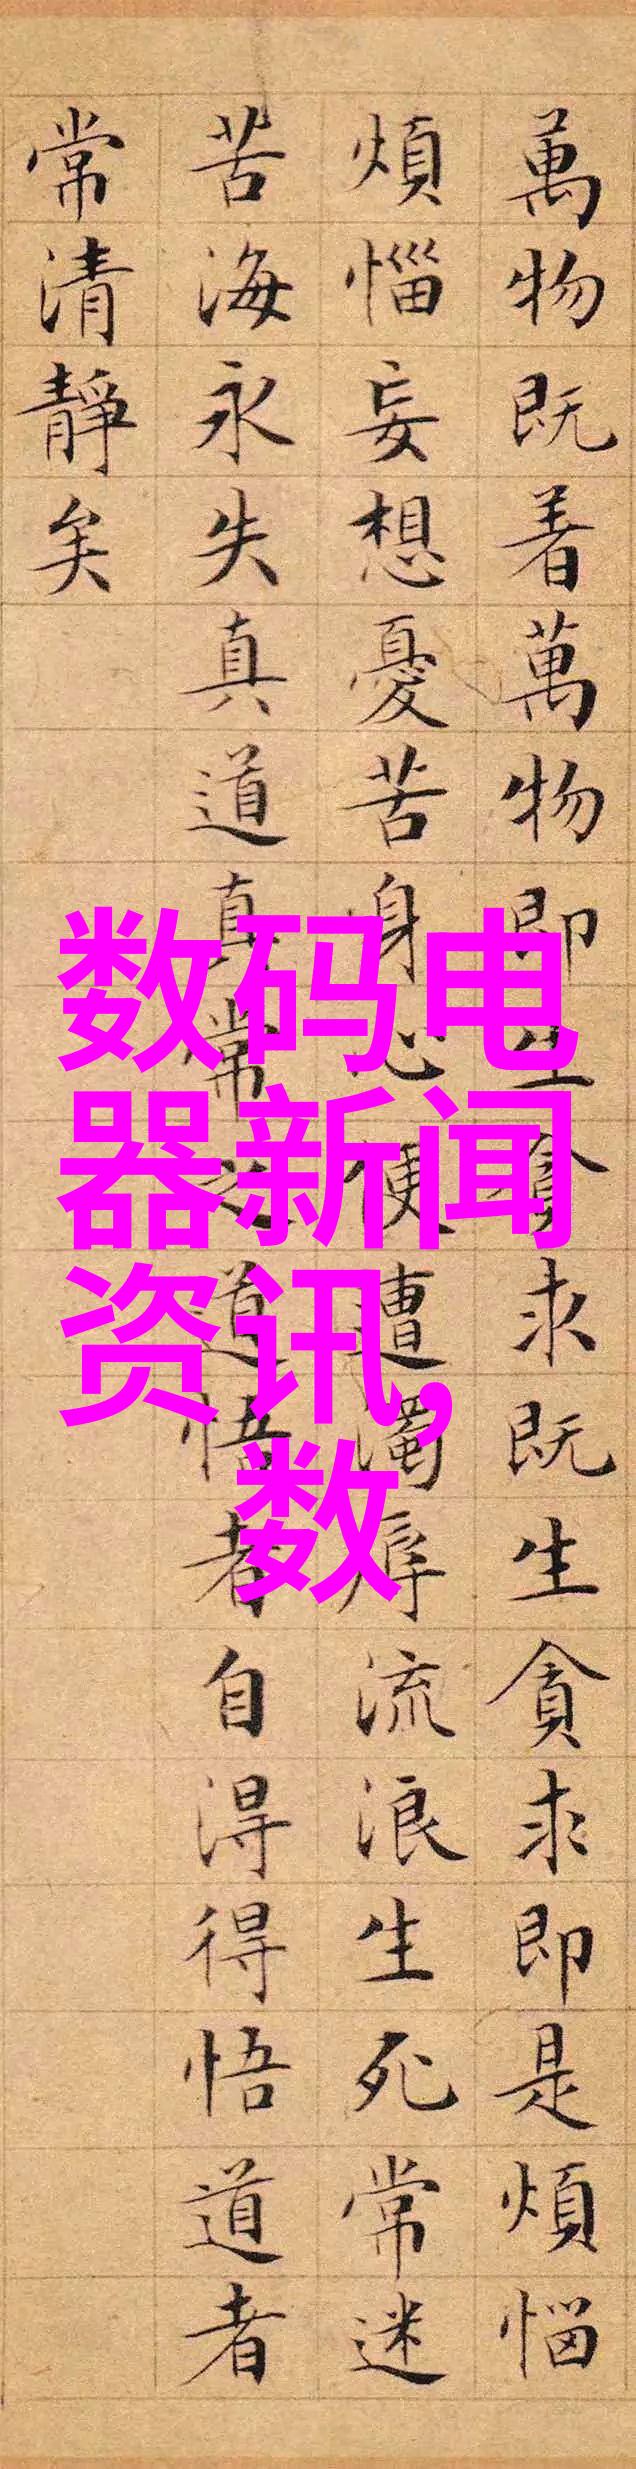 萬物既着萬物即生貪求既生貪求即是煩惱
煩惱妄想憂苦身心便遭濁辱流浪生死常迷
苦海永失真道真常之道悟者自得得悟道者
常清靜矣
数码电
器新闻
资讯,
数